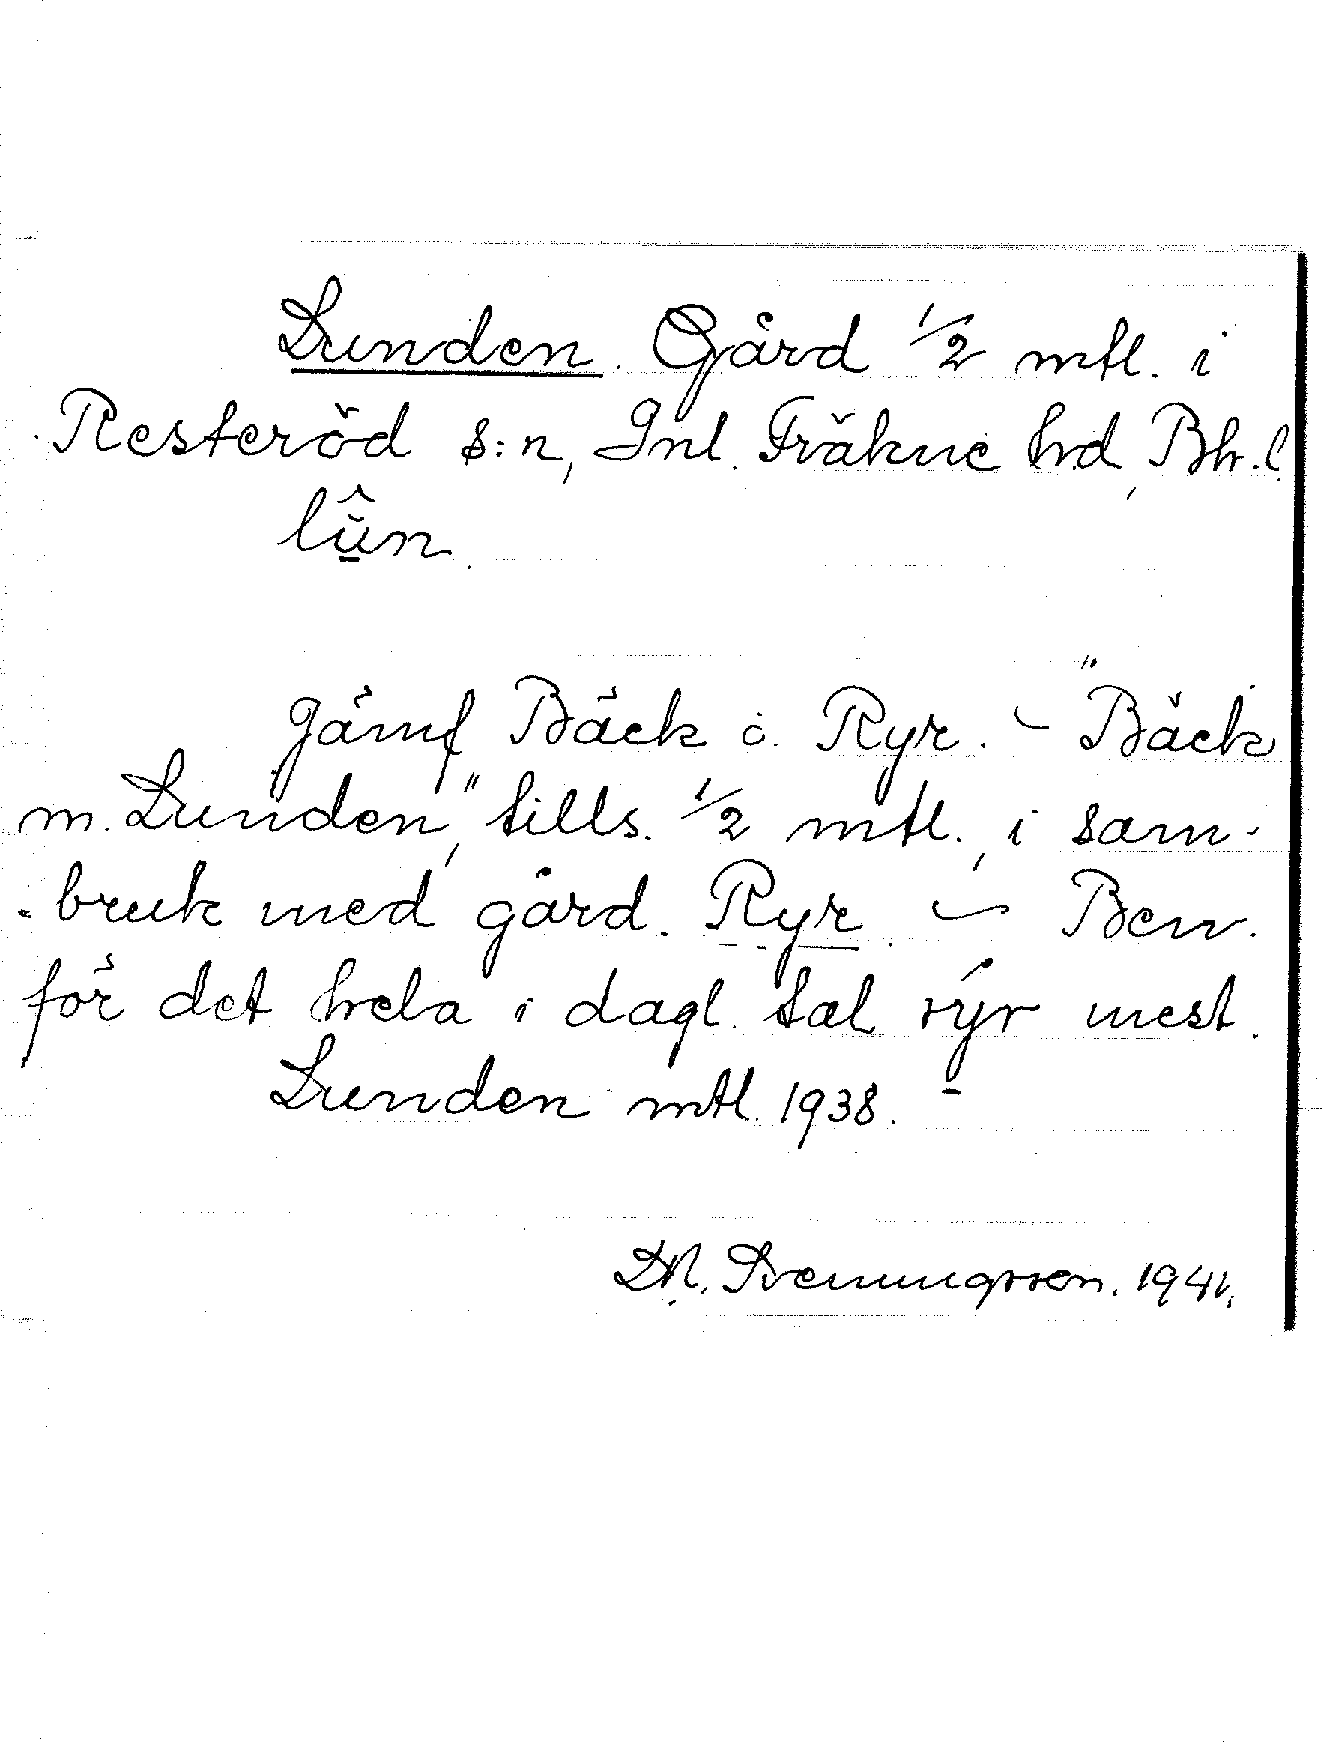 Lunden. Gård 1/2 mtl. i
Resteröd s:n, Inl. Fräkne hd, Bh. l.
lûn.
Jämf Bäck o. Ryr. – "Bäck
m. Lunden," tills. 1/2 mtl., i sam-
bruk med gård. Ryr – Ben.
för det hela i dagl. tal rýr mest.
Lunden mtl. 1938.
Svenungsson. 1941.